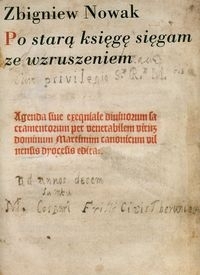 Zbigniew Nowak
Po starą księgę sięgam
ze wzruszeniem
privilegio
Agenda siue exequiale diuinorum sa
cramentorum per venerabilem virum
dominum Martinum canonicum vil
nensis dyocesis edita.
Ad annos decem
M. Caspari